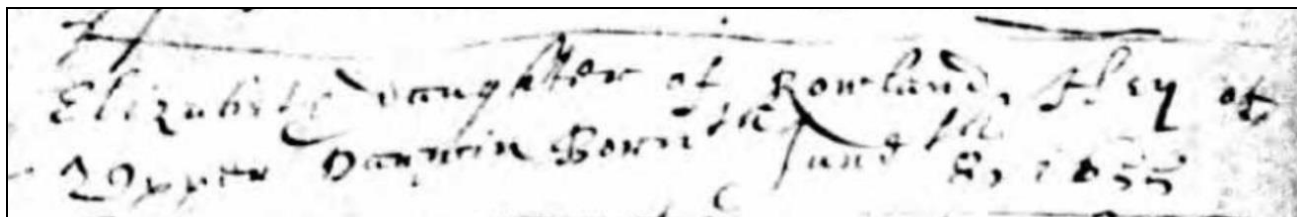 Elizabeth daughter of Rowland fley of
Upper Born the June the 8, 1655